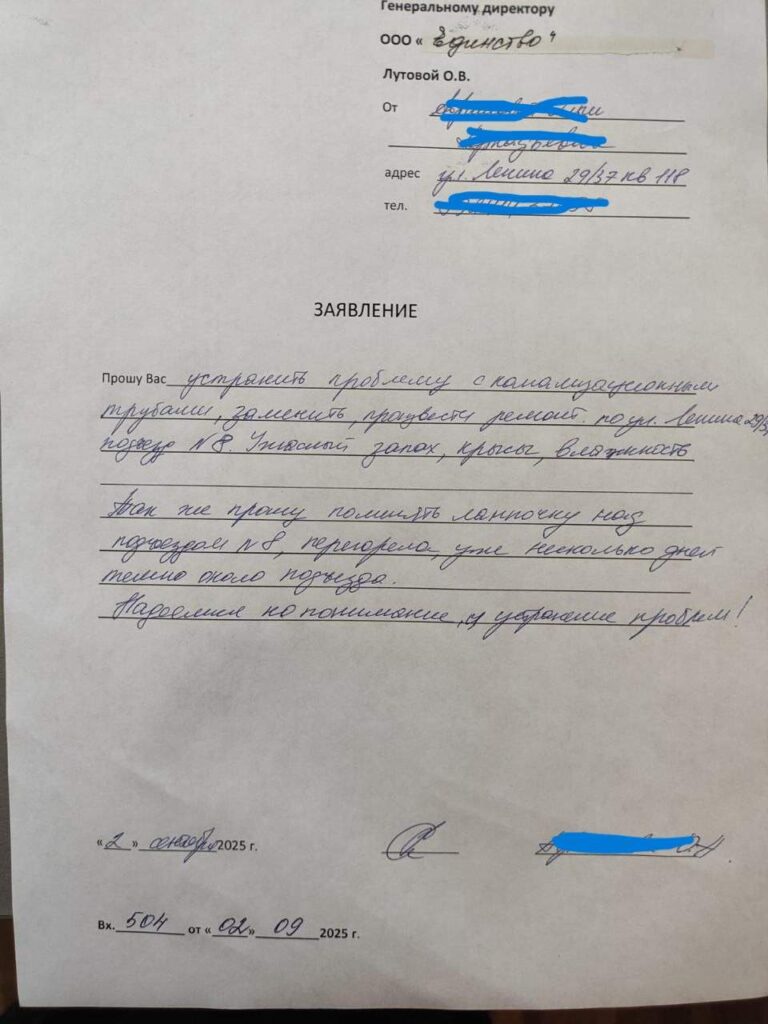 Генеральному директору
ООО « Единство"
Лутовой О.В.
От
адрес ул. Ленина 29/37 кв 118
тел.
ЗАЯВЛЕНИЕ
Прошу Вас устранить проблему с канализационными
трубами, заменить, произвести ремонт. по ул. Ленина 29/37
подъезд №8. Ужасный запах, крысы, влажность
Так же прошу поминять лампочку над
подъездом №8, перегорела, уже несколько дней
темно около подъезда.
Надеемся на понимание, и устранение проблем!
«2» сентября 2025 г.
Вх. 504 от «02» 09 2025 г.